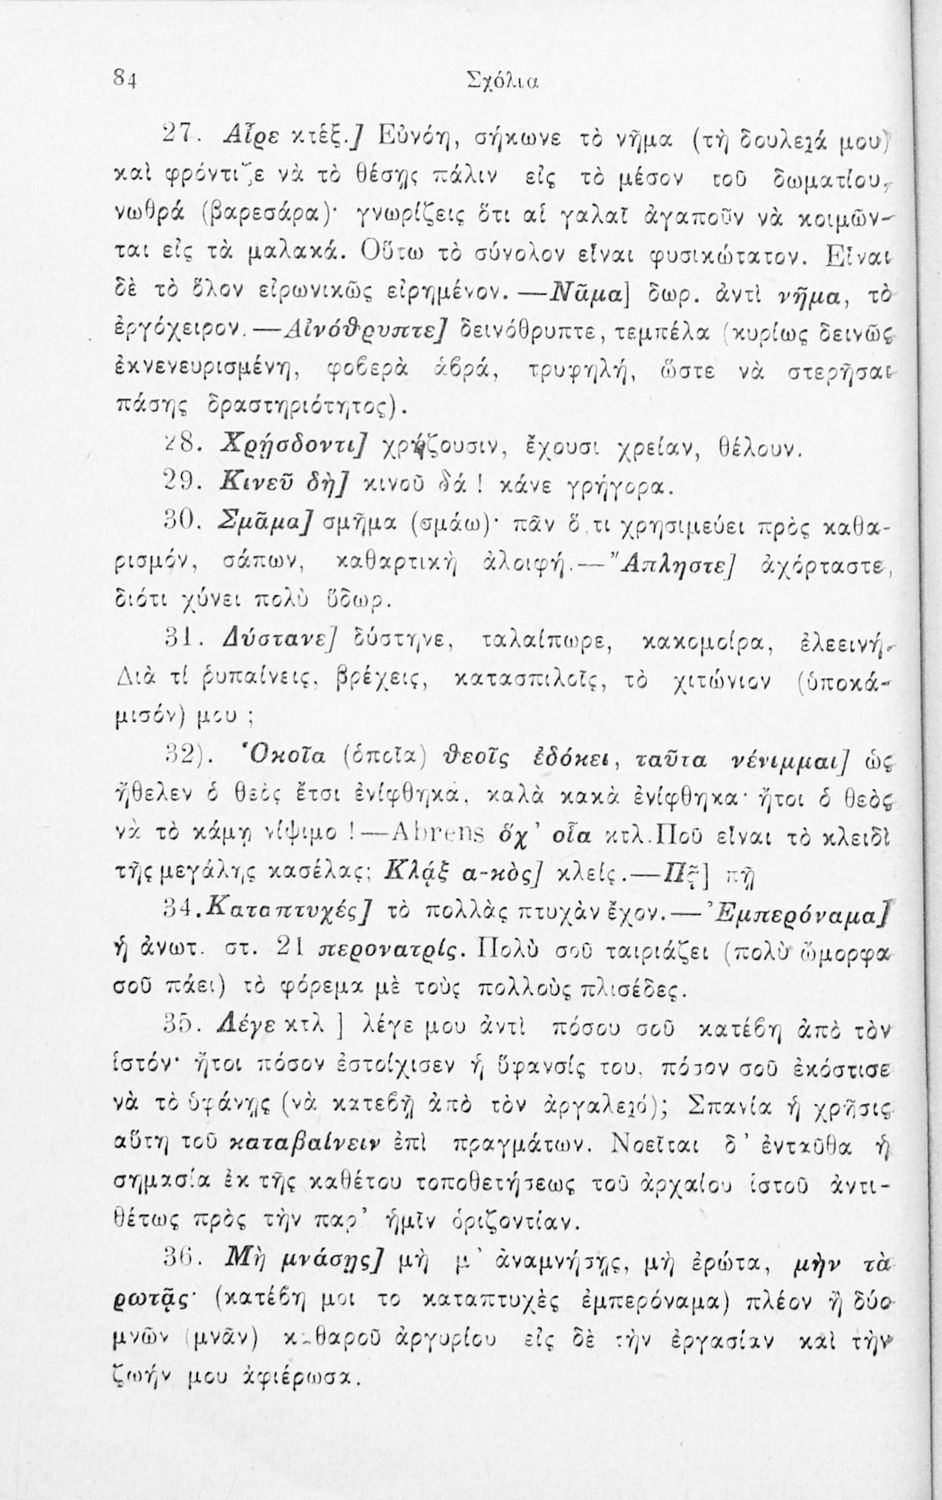 84 Σχόλια
27. Αἶρε κτἑξ.] Εὐνόη, σήκωνε τὸ νῆμα (τὴ δουλειά μου)
καὶ φρόντιζε νὰ τὸ θέσῃς πάλιν εἰς τὸ μέσον τοῦ δωματίου,
νωθρά (βαρεσάρα)· γνωρίζεις ὅτι αἱ γαλαῖ ἀγαποῦν νὰ κοιμῶν-
ται εἰς τὰ μαλακά. Οὕτω τὸ σύνολον εἶναι φυσικώτατον. Εἶναι
δὲ τὸ ὅλον εἰρωνικῶς εἰρημένον. —Νᾶμα] δωρ. ἀντὶ νῆμα, τὸ
ἐργόχειρον.—Αἰνόθρυπτε] δεινόθρυπτε, τεμπέλα (κυρίως δεινῶς
ἐκνενευρισμένη, φοβερὰ ἁβρά, τρυφηλή, ὥστε νὰ στερῆσαι
πάσης δραστηριότητος).
28. Χρῄσδοντι] χρῄζουσιν, ἔχουσι χρείαν, θέλουν.
29. Κινεῦ δὴ] κινοῦ δά! κάνε γρήγορα.
30. Σμᾶμα] σμῆμα (σμάω)· πᾶν ὅ,τι χρησιμεύει πρὸς καθα-
ρισμόν, σάπων, καθαρτικὴ ἀλοιφή.—Ἄπληστε] ἀχόρταστε,
διότι χύνει πολὺ ὕδωρ.
31. Δύστανε] δύστηνε, ταλαίπωρε, κακομοίρα, ἐλεεινή.
Διὰ τί ῥυπαίνεις, βρέχεις, κατασπιλοῖς, τὸ χιτώνιον (ὑποκά-
μισόν) μου ;
32). Ὁκοῖα (ὁποῖα) θεοῖς ἐδόκει, ταῦτα νένιμμαι] ὡς
ἤθελεν ὁ θεὸς ἔτσι ἐνίφθηκα, καλὰ κακὰ ἐνίφθηκα· ἤτοι ὁ θεὸς
νὰ τὸ κάμῃ νίψιμο !—Ahrens ὅχ' οἷα κτλ.Ποῦ εἶναι τὸ κλειδὶ
τῆς μεγάλης κασέλας; Κλᾴξ α-κὸς] κλείς.—Πᾷ] πῇ
34.Καταπτυχές] τὸ πολλὰς πτυχὰν ἔχον.—Ἐμπερόναμα]
ἡ ἀνωτ. στ. 21 περονατρίς. Πολὺ σοῦ ταιριάζει (πολὺ ὤμορφα
σοῦ πάει) τὸ φόρεμα μὲ τοὺς πολλοὺς πλισέδες.
35. Λέγε κτλ] λέγε μου ἀντὶ πόσου σοῦ κατέβη ἀπὸ τὸν
ἱστόν· ἤτοι πόσον ἐστοίχισεν ἡ ὕφανσίς του, πόσον σοῦ ἐκόστισε
νὰ τὸ ὑφάνῃς (νὰ κατεβῇ ἀπὸ τὸν ἀργαλειό); Σπανία ἡ χρῆσις
αὕτη τοῦ καταβαίνειν ἐπὶ πραγμάτων. Νοεῖται δ' ἐνταῦθα ἡ
σημασία ἐκ τῆς καθέτου τοποθετήσεως τοῦ ἀρχαίου ἱστοῦ ἀντι-
θέτως πρὸς τὴν παρ' ἡμῖν ὁριζοντίαν.
36. Μὴ μνάσῃς] μὴ μ' ἀναμνήσῃς, μὴ ἐρώτα, μὴν τὰ
ρωτᾷς· (κατέβη μοι το καταπτυχὲς ἐμπερόναμα) πλέον ἢ δύο
μνῶν (μνᾶν) καθαροῦ ἀργυρίου εἰς δὲ τὴν ἐργασίαν καὶ τὴν
ζωήν μου ἀφιέρωσα.